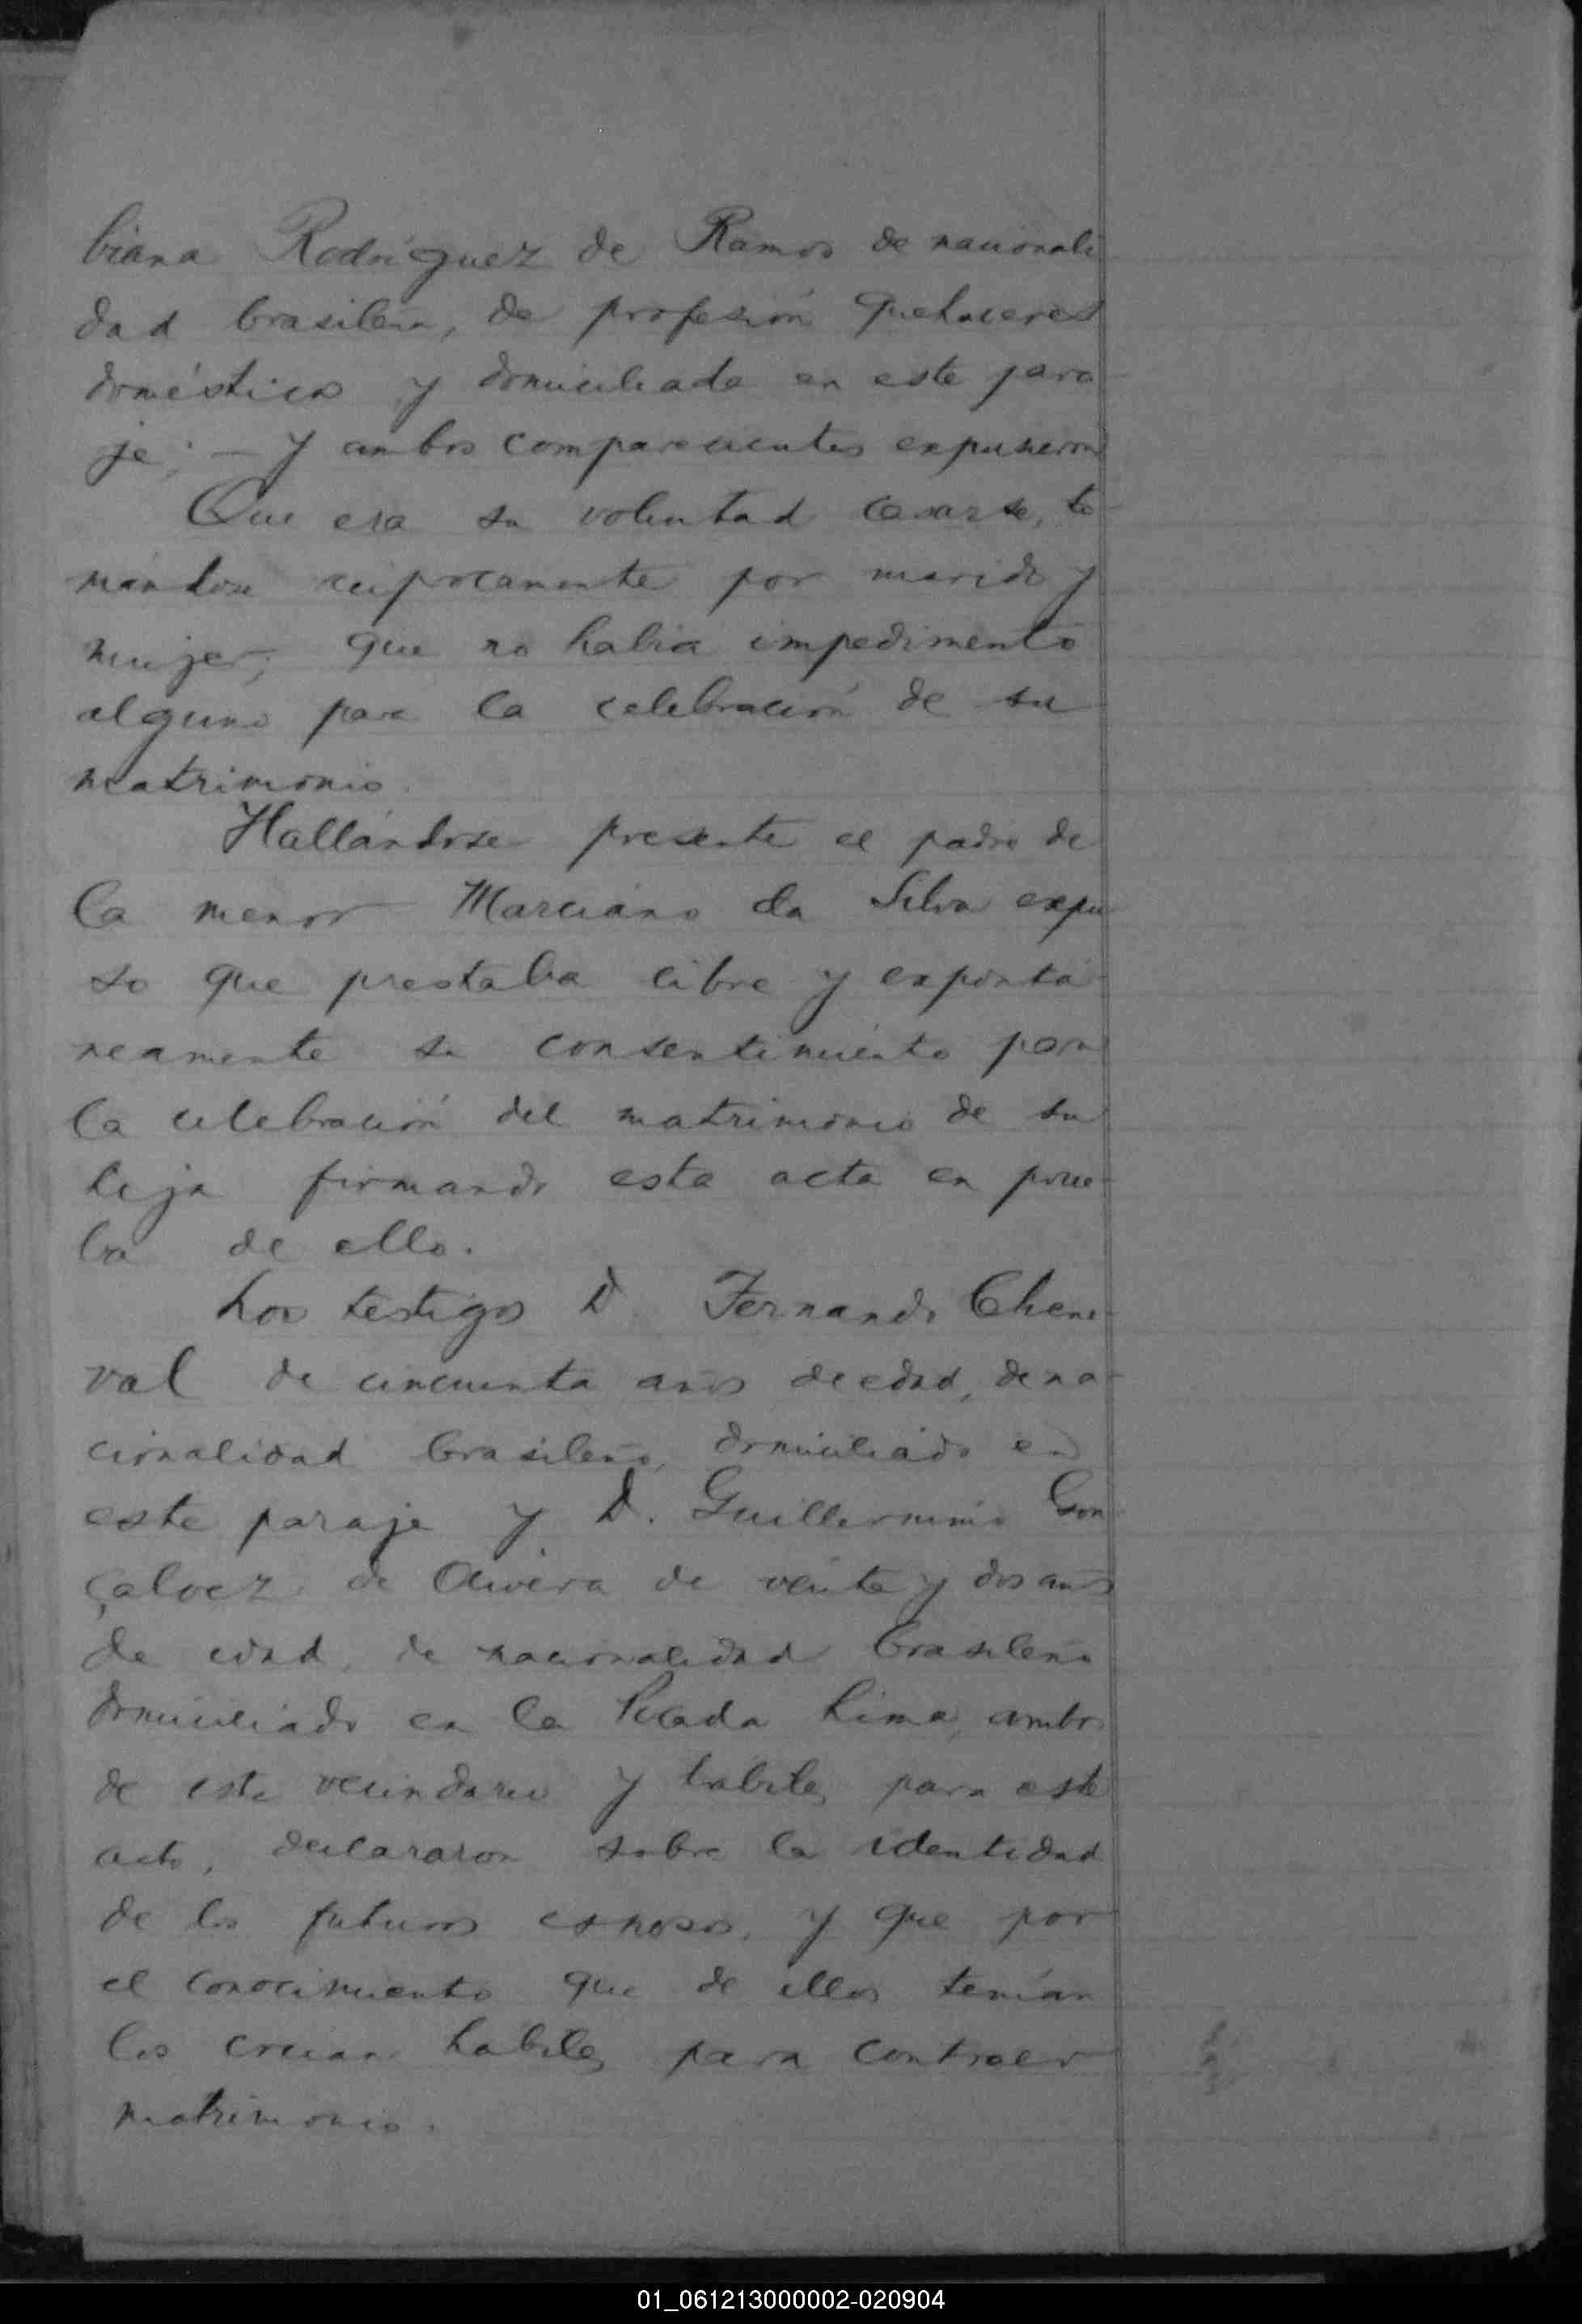 biana Rodríguez de Ramos de nacionali
dad brasilera, de profesión quehaceres
domésticos y domiciliada en este para
je; — y ambos comparecientes expusieron
Que era su voluntad casarse, to
mándose recíprocamente por marido y
mujer; que no había impedimento
alguno para la celebración de su
matrimonio.
Hallándose presente el padre de
la menor Marciano da Silva expu
so que prestaba libre y expontá
neamente su consentimiento para
la celebración del matrimonio de su
hija firmando esta acta en prue-
ba de ello.
Los testigos D. Fernando Chene-
val de cincuenta años de edad, de na-
cionalidad brasilero, domiciliado en
este paraje y D. Guillermino Gon
çalvez de Oliveira de veinte y dos años
de edad, de nacionalidad brasilero
domiciliado en la Picada Lima, ambos
de este vecindario y hábiles para este
acto, declararon sobre la identidad
de los futuros esposos, y que por
el conocimiento que de ellos tenían
los creian hábiles para contraer
matrimonio.
01_061213000002-020904